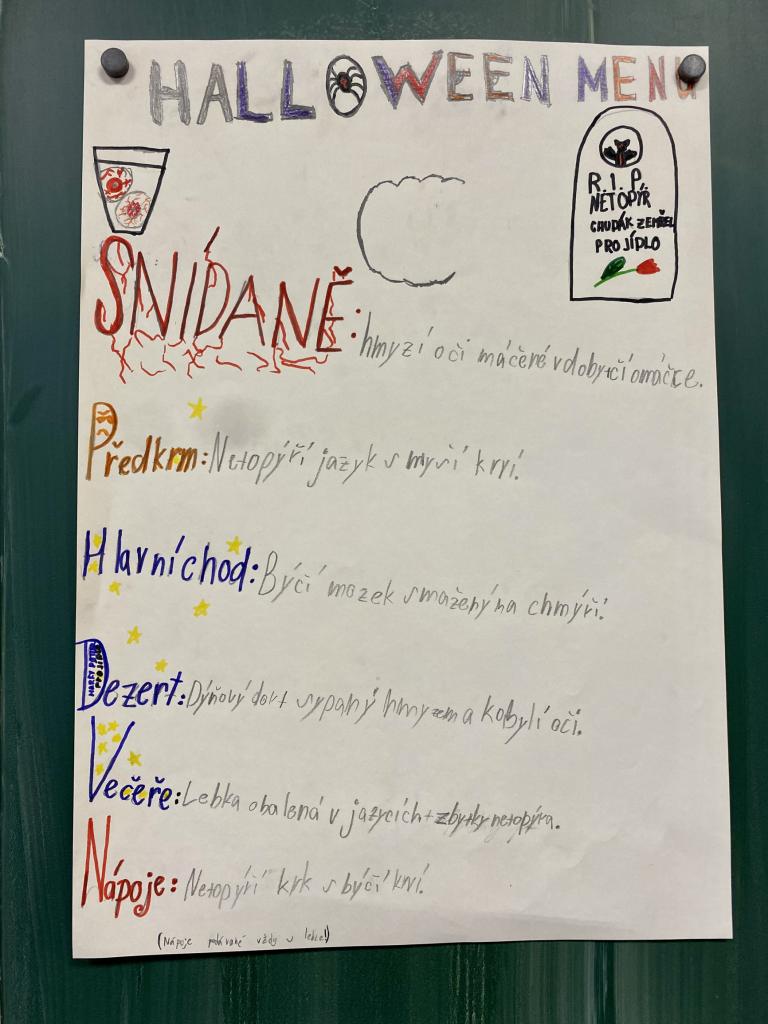 HALLOWEEN MENU
R.I.P.
NETOPÝR
CHUDÁK ZEMŘEL
PRO JÍDLO
SNÍDANĚ: hmyzí oči máčené v dobytčí omáčce.
Předkrm: Netopýří jazyk s myší krví.
Hlavní chod: Býčí mozek smažený na chmýří.
Dezert: Dýňový dort sypaný hmyzem a kobylí oči.
Večeře: Lebka obalená v jazycích + zbytky netopýra.
Nápoje: Netopýří krk s býčí krví.
(Nápoje podávané vždy v lebce!)